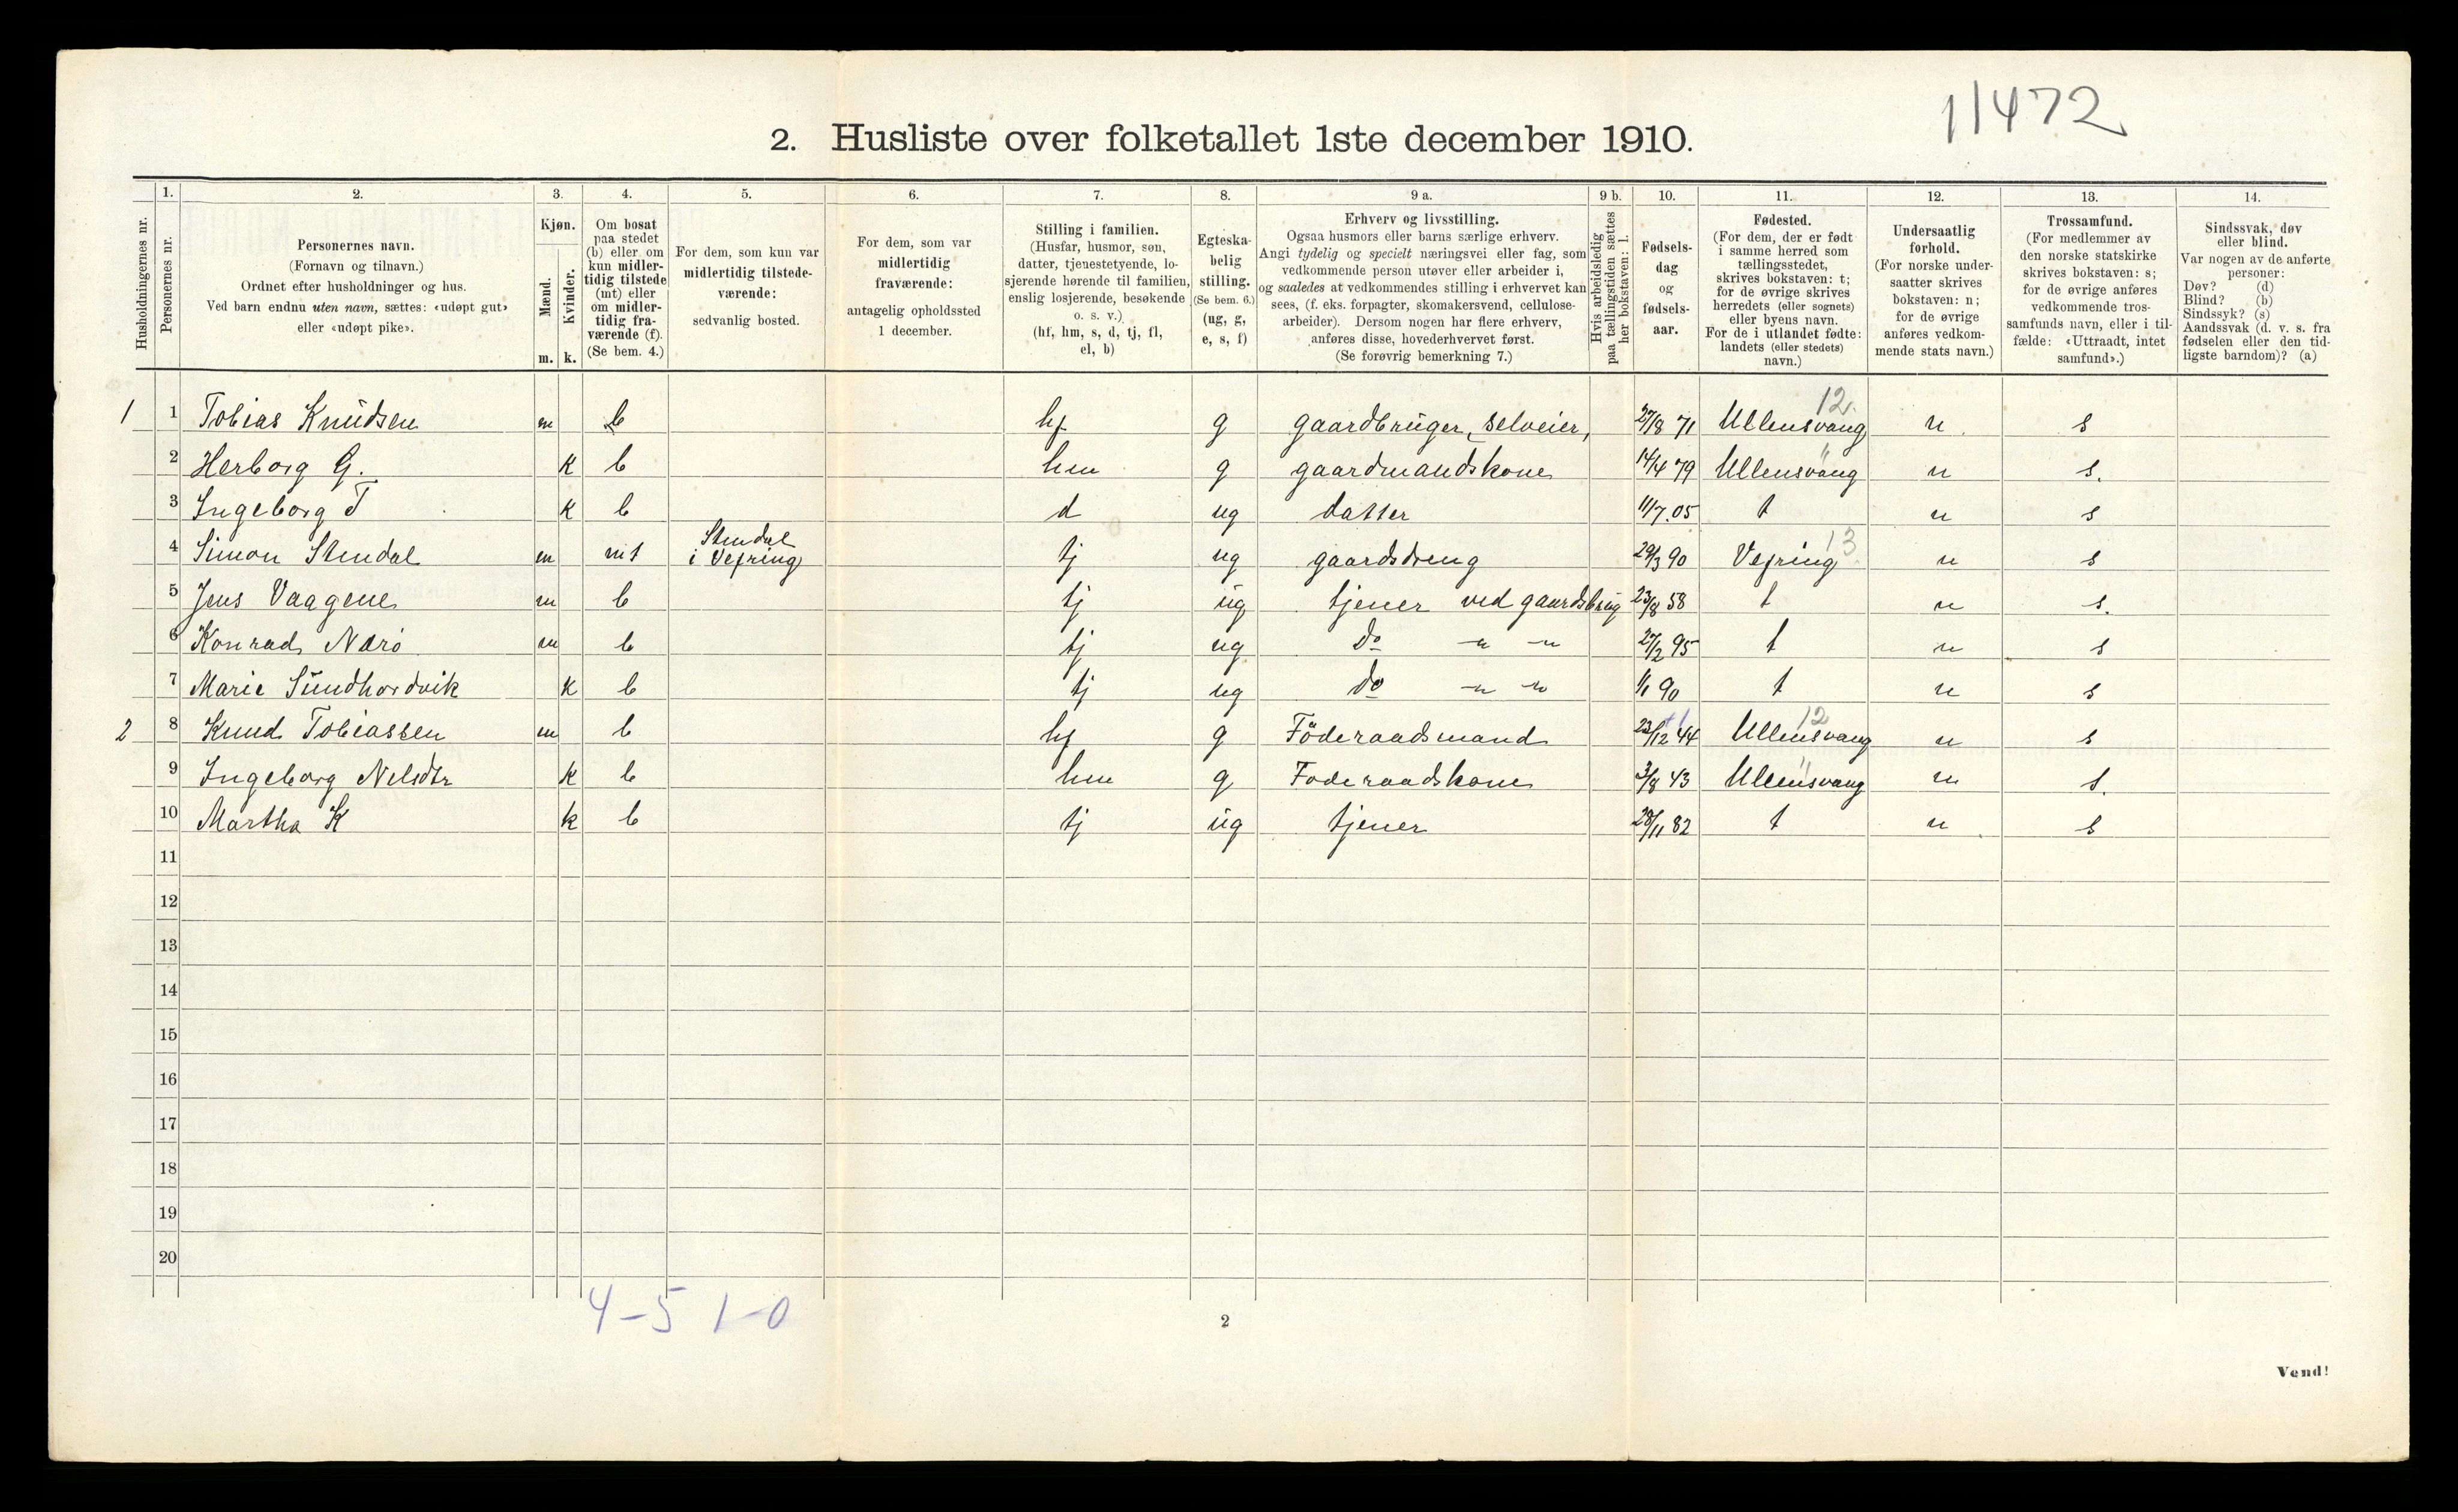 11472
2. Husliste over folketallet 1ste december 1910.
Husholdningernes nr.
1.
Personernes nr.
2.
Personernes navn.
(Fornavn og tilnavn.)
Ordnet efter husholdninger og hus.
Ved barn endnu uten navn, sættes: «udøpt gut»
eller «udøpt pike».
3.
Kjøn.
Mænd.
Kvinder.
m. k.
4.
Om bosat
paa stedet
(b) eller om
kun midler-
tidig tilstede
(mt) eller
om midler-
tidig fra-
værende (f).
(Se bem. 4.)
5.
For dem, som kun var
midlertidig tilstede-
værende:
sedvanlig bosted.
6.
For dem, som var
midlertidig
fraværende:
antagelig opholdssted
1 december.
7.
Stilling i familien.
(Husfar, husmor, søn,
datter, tjenestetyende, lo-
sjerende hørende til familien,
enslig losjerende, besøkende
o. s. v.)
(hf, hm, s, d, tj, fl,
el, b)
8.
Egteska-
belig
stilling.
(Se bem. 6.)
(ug, g,
e, s, f)
9 a.
Erhverv og livsstilling.
Ogsaa husmors eller barns særlige erhverv.
Angi tydelig og specielt næringsvei eller fag, som
vedkommende person utøver eller arbeider i,
og saaledes at vedkommendes stilling i erhvervet kan
sees, (f. eks. forpagter, skomakersvend, cellulose-
arbeider). Dersom nogen har flere erhverv,
anføres disse, hovederhvervet først.
(Se forøvrig bemerkning 7.)
9 b.
Hvis arbeidsledig
paa tællingstiden sættes
her bokstaven: l.
10.
Fødsels-
dag
og
fødsels-
aar.
11.
Fødested.
(For dem, der er født
i samme herred som
tællingsstedet,
skrives bokstaven: t;
for de øvrige skrives
herredets (eller sognets)
eller byens navn.
For de i utlandet fødte:
landets (eller stedets)
navn.)
12.
Undersaatlig
forhold.
(For norske under-
saatter skrives
bokstaven: n;
for de øvrige
anføres vedkom-
mende stats navn.)
13.
Trossamfund.
(For medlemmer av
den norske statskirke
skrives bokstaven: s;
for de øvrige anføres
vedkommende tros-
samfunds navn, eller i til-
fælde: «Uttraadt, intet
samfund».)
14.
Sindssvak, døv
eller blind.
Var nogen av de anførte
personer:
Døv? (d)
Blind? (b)
Sindssyk? (s)
Aandssvak (d. v. s. fra
fødselen eller den tid-
ligste barndom)? (a)
12.
1 1 Tobias Knudsen m b hf g gaardbruger, selveier, 27/8 71 Ullensvang n s
2 Herborg G. K b hm g gaardmandskone 14/4 79 Ullensvang n s.
3 Ingeborg T K b d ug datter 11/7.05 t n s
Stendal 13
4 Simon Stendal m mt i Vefring tj ug gaardsdreng 29/3 90 Vefring n s
5 Jens Vaagene m b tj ug tjener ved gaardsbrug 23/8 58 t n s.
6 Konrad Nærö m b tj ug do -"- -"- 27/2 95 t n s
7 Marie Sundhordvik K b tj ug do -"- -"- 1/1 90 t n s
12
2 8 Knud Tobiassen m b hf g Föderaadsmand 23/12 44 Ullensvang n s
9 Ingeborg Nelsdtr K b hm g Foderaadskone 3/8 43 Ullensvang n s.
10 Martha K k b tj ug tjener 28/11 82 t n s
11
12
13
14
15
16
17
18
19
20
4-5 1-0
2
Vend!